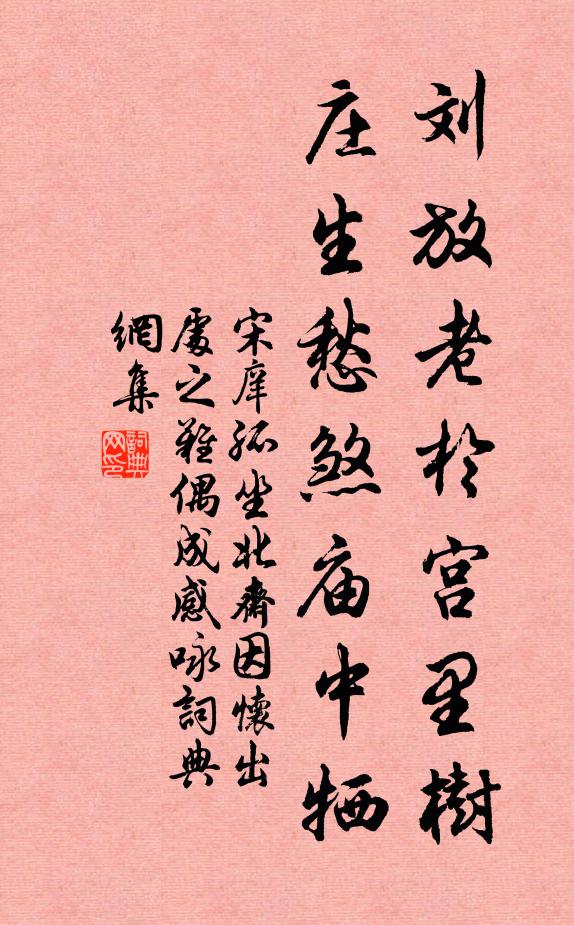 刘放老於宫里樹
庄生愁煞庙中牺
宋庠孤坐北齋因懷出
處之難偶成感咏詞典
網集
詞典
网印